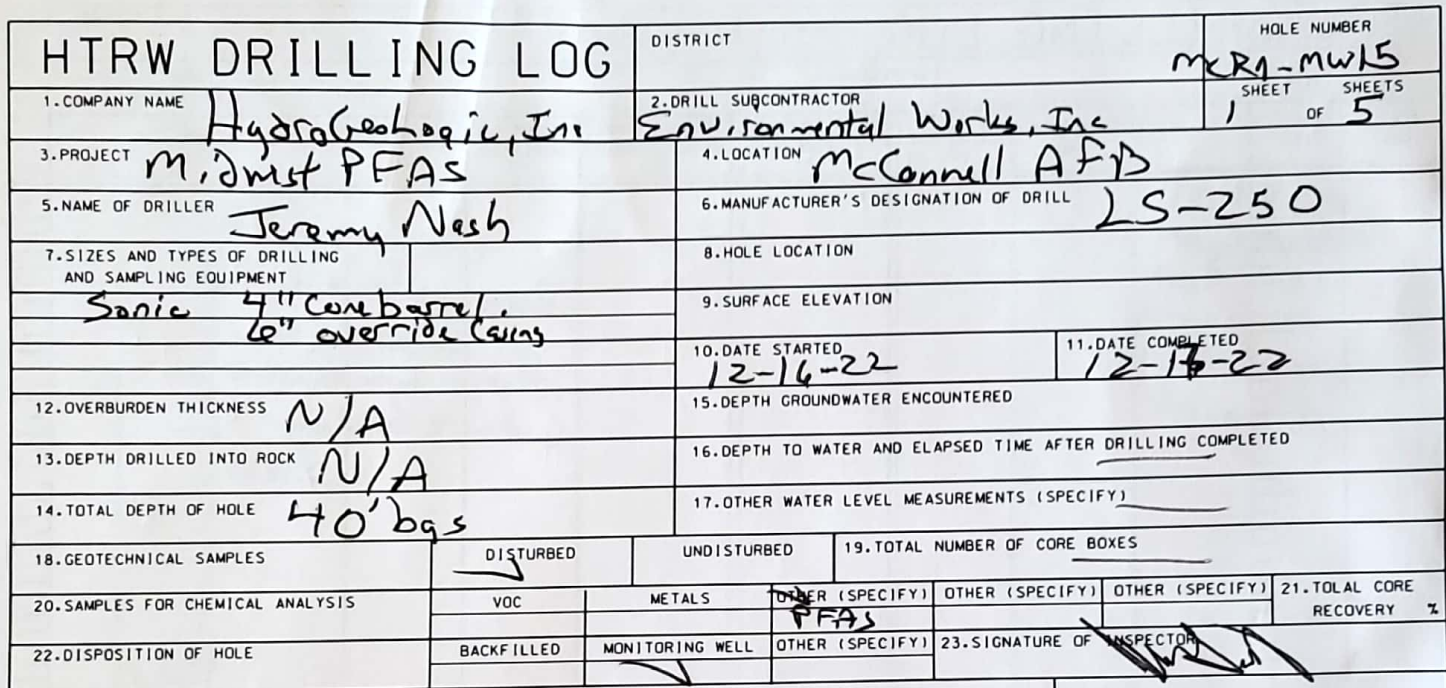 HTRW DRILLING LOG
DISTRICT
HOLE NUMBER
MCR1-MW15
1.COMPANY NAME
HydroGeoLogic, Inc
2.DRILL SUBCONTRACTOR
Environmental Works, Inc
SHEET SHEETS
1 OF 5
3.PROJECT Midwest PFAS
4.LOCATION McConnell AFB
5.NAME OF DRILLER Jeremy Nash
6.MANUFACTURER'S DESIGNATION OF DRILL LS-250
7.SIZES AND TYPES OF DRILLING
AND SAMPLING EQUIPMENT
Sonic 4" Core barrel.
6" override Casing
8.HOLE LOCATION
9.SURFACE ELEVATION
10.DATE STARTED
12-16-22
11.DATE COMPLETED
12-16-22
12.OVERBURDEN THICKNESS N/A
15.DEPTH GROUNDWATER ENCOUNTERED
13.DEPTH DRILLED INTO ROCK N/A
16.DEPTH TO WATER AND ELAPSED TIME AFTER DRILLING COMPLETED
14.TOTAL DEPTH OF HOLE 40' bgs
17.OTHER WATER LEVEL MEASUREMENTS (SPECIFY)
18.GEOTECHNICAL SAMPLES
DISTURBED
UNDISTURBED
19.TOTAL NUMBER OF CORE BOXES
20.SAMPLES FOR CHEMICAL ANALYSIS
VOC
METALS
OTHER (SPECIFY)
PFAS
OTHER (SPECIFY)
OTHER (SPECIFY)
21.TOLAL CORE
RECOVERY %
22.DISPOSITION OF HOLE
BACKFILLED
MONITORING WELL
OTHER (SPECIFY)
23.SIGNATURE OF INSPECTOR